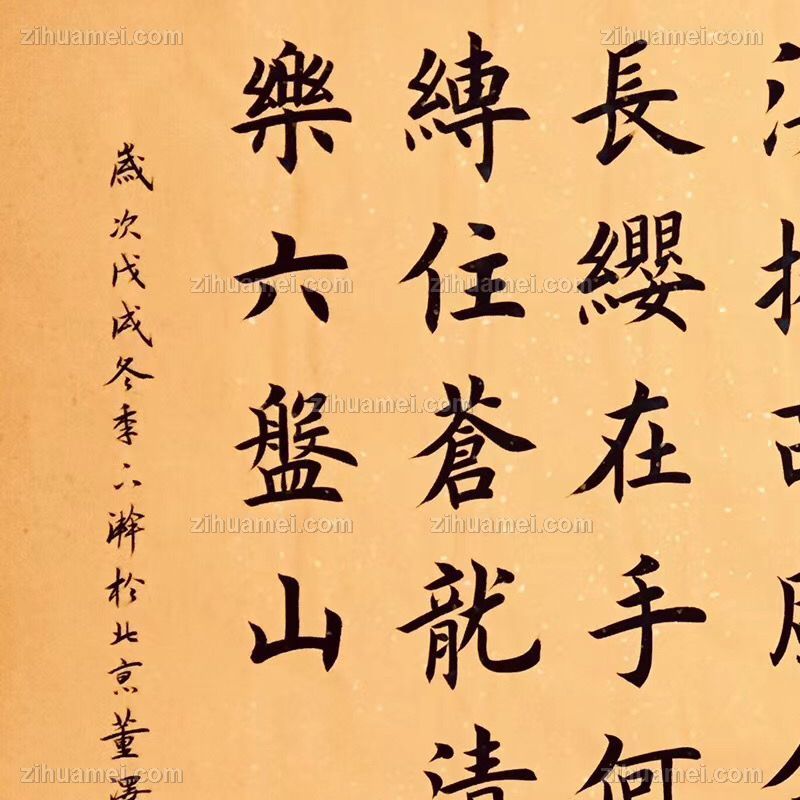 長纓在手何
縛住蒼龍清
樂六盤山
歲次戊戌冬季 於北京董
zihuamei.com
zihuamei.com
zihuamei.com
zihuamei.com
zihuamei.com
zihuamei.com
zihuamei.com
zihuamei.com
zihuamei.com